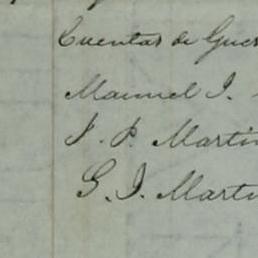 Cuentas de Guer
Manuel I.
J. P. Martin
G. I. Marti